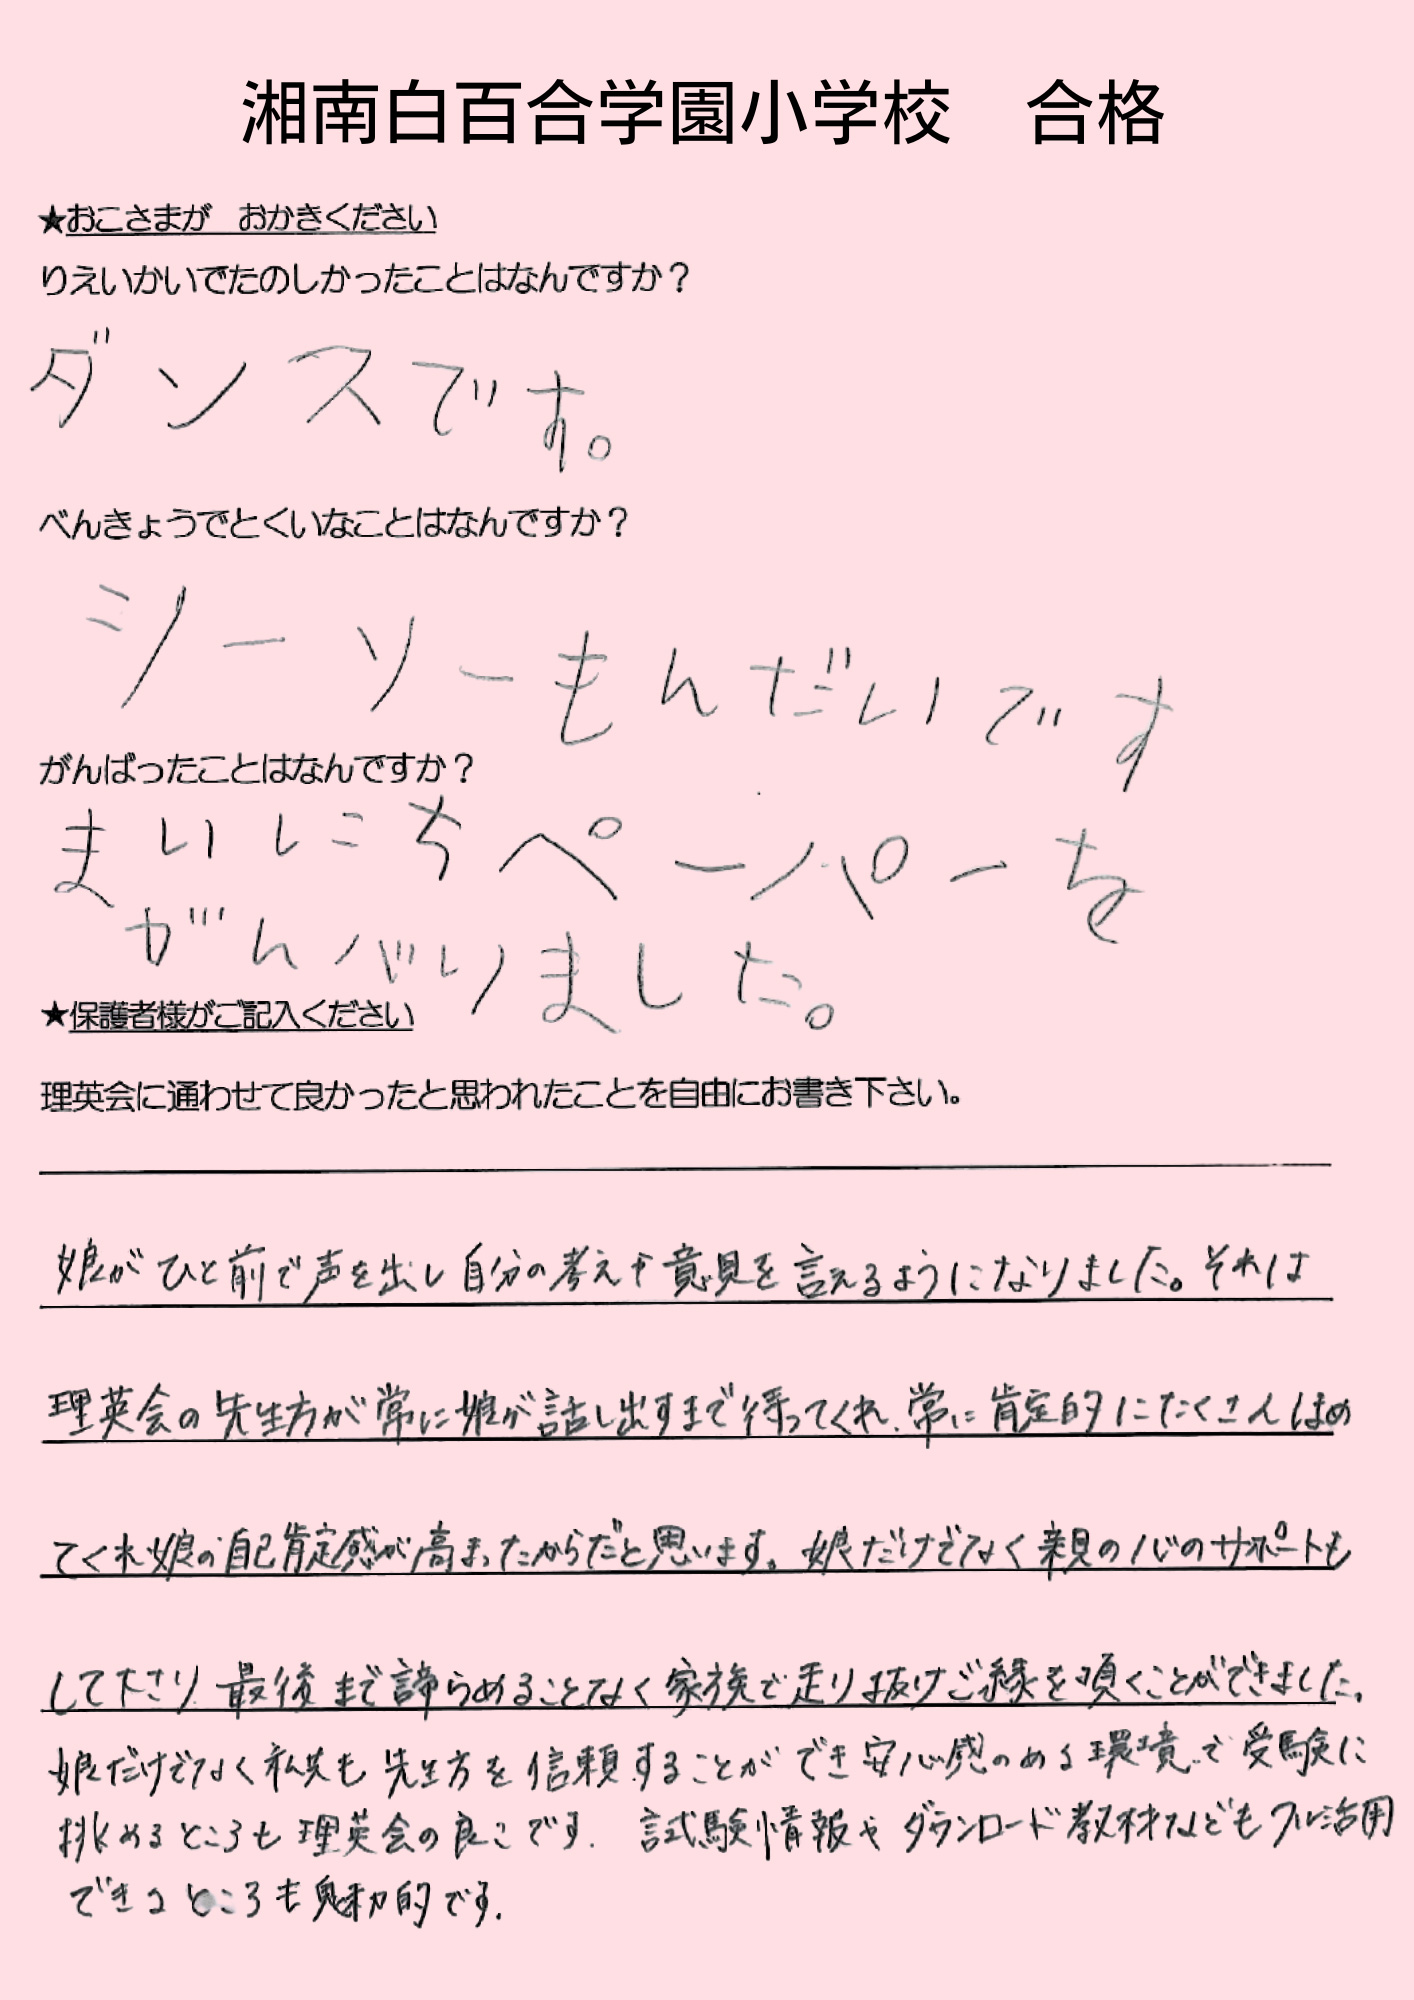 湘南白百合学園小学校　合格
★おこさまが　おかきください
りえいかいでたのしかったことはなんですか？
ダンスです。
べんきょうでとくいなことはなんですか？
シーソーもんだいです
がんばったことはなんですか？
まいにちペーパーを
がんバりました。
★保護者様がご記入ください
理英会に通わせて良かったと思われたことを自由にお書き下さい。
娘がひと前で声を出し自分の考えや意見を言えるようになりました。それは
理英会の先生方が常に娘が話し出すまで待ってくれ、常に肯定的にたくさんほめ
てくれ娘の自己肯定感が高まったからだと思います。娘だけでなく親の心のサポートも
して下さり、最後まで諦らめることなく家族で走り抜けご縁を頂くことができました。
娘だけでなく私共も先生方を信頼することができ安心感のある環境で受験に
挑めるところも理英会の良こです。試験情報やダウンロード教材などもフル活用
できるところも魅力的です。